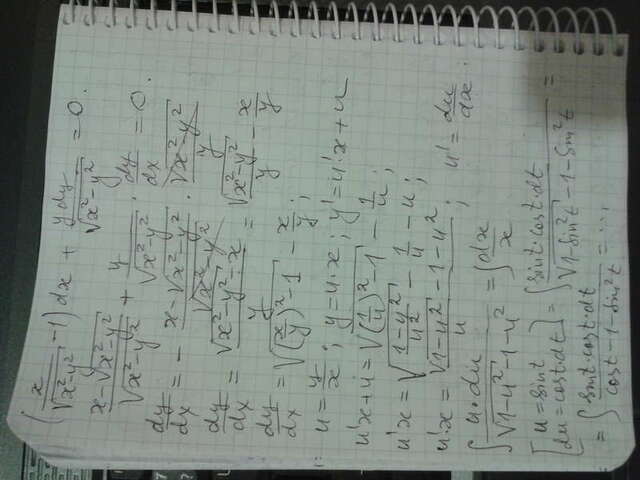 (x/√(x²-y²) - 1) dx + y dy/√(x²-y²) = 0.
(x-√(x²-y²))/√(x²-y²) + y/√(x²-y²) · dy/dx = 0.
dy/dx = - (x-√(x²-y²))/√(x²-y²) · √(x²-y²)/y
dy/dx = (√(x²-y²) - x)/y = √(x²-y²)/y - x/y
dy/dx = √((x/y)² - 1) - x/y;
u = y/x; y = u·x; y' = u'·x + u
u'x + u = √((1/u)² - 1) - 1/u;
u'x = √((1-u²)/u²) - 1/u - u;
u'x = (√(1-u²) - 1 - u²)/u; u' = du/dx.
∫ u·du/(√(1-u²) - 1 - u²) = ∫ dx/x
[u = sint du = cost·dt] = ∫ sint·cost·dt/(√(1-sin²t) - 1 - sin²t) =
= ∫ sint·cost·dt/(cost - 1 - sin²t) = ...